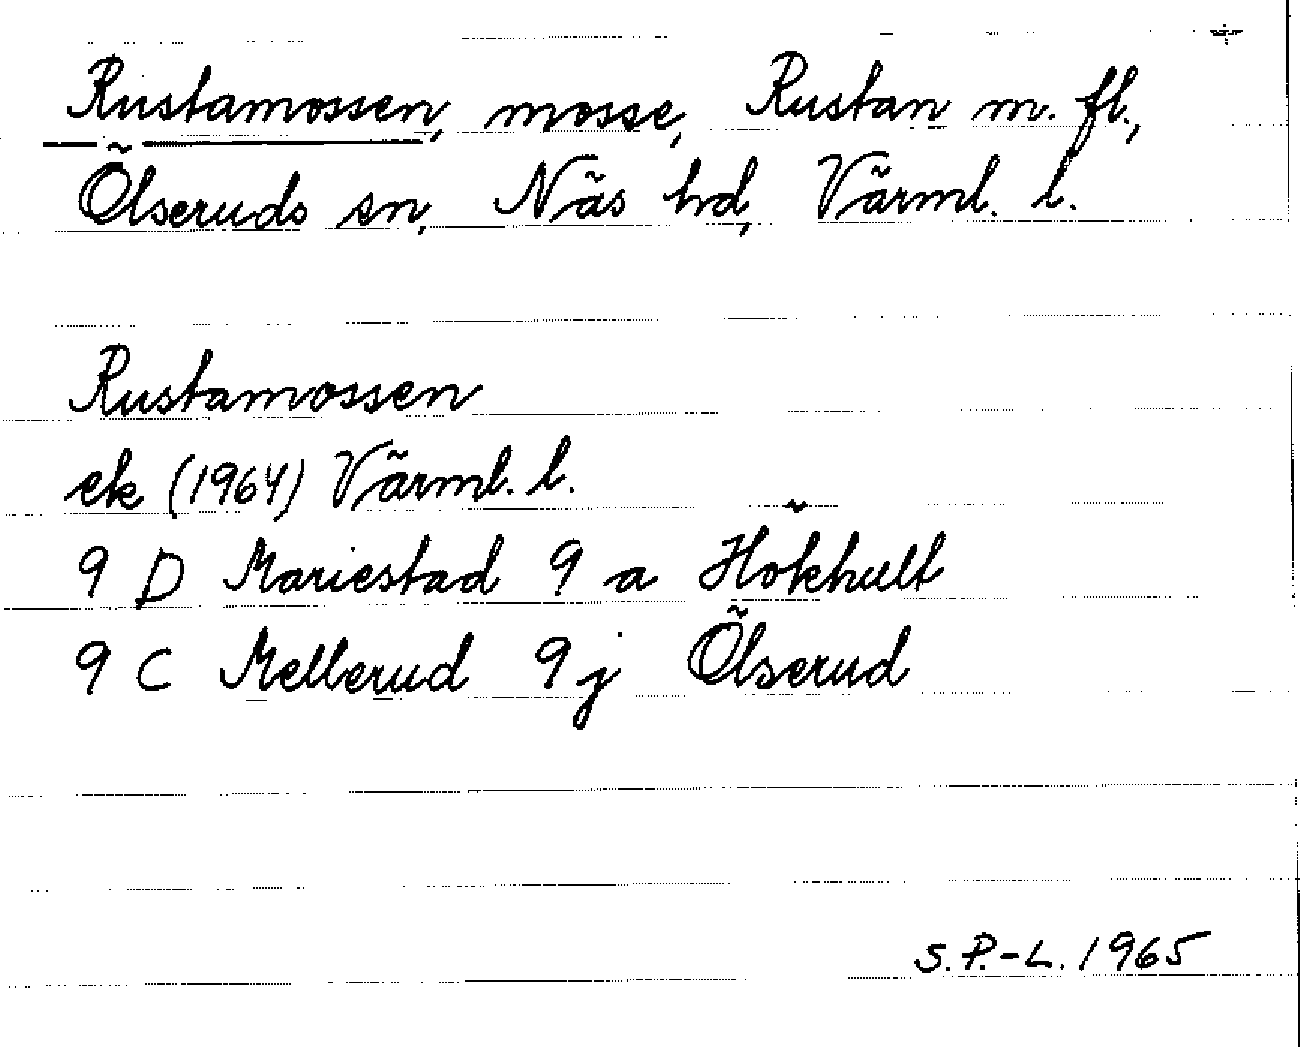 Rustamossen, mosse, Rustan m. fl.,
Ölseruds sn, Näs hd, Värml. l.
Rustamossen
ek (1964) Värml. l.
9 D Mariestad 9 a Hökhult
9 C Mellerud 9 j Ölserud
S. P.-L. 1965